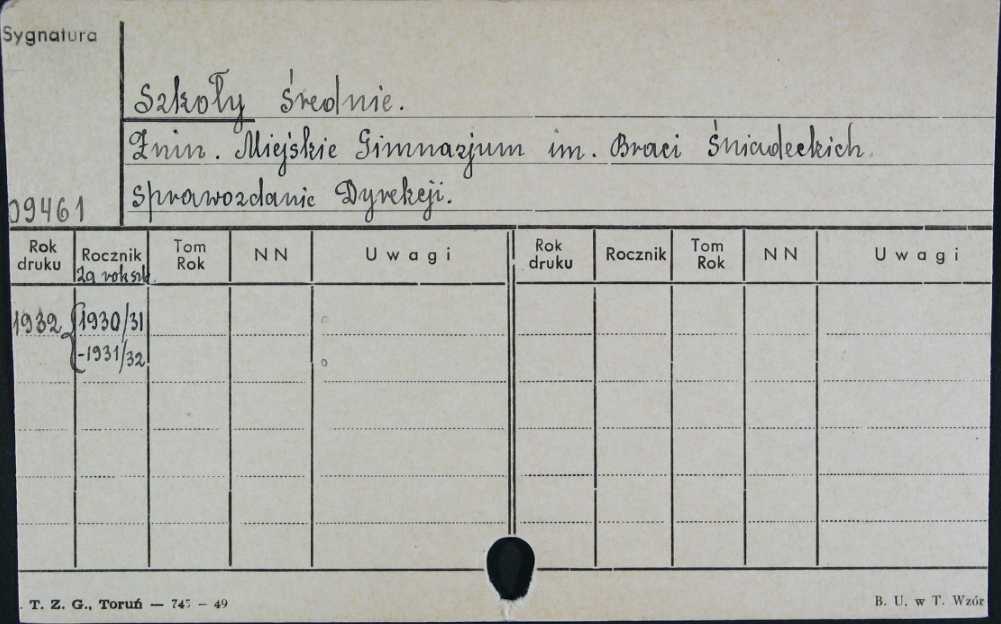 Sygnatura
Szkoły średnie.
Żnin. Miejskie Gimnazjum im. Braci Śniadeckich.
Sprawozdanie Dyrekcji.
09461
Rok druku Rocznik Tom Rok NN Uwagi Rok druku Rocznik Tom Rok NN Uwagi
za rok szk.
1932 {1930/31
-1931/32
T. Z. G., Toruń — 745 - 49 B. U. w T. Wzór